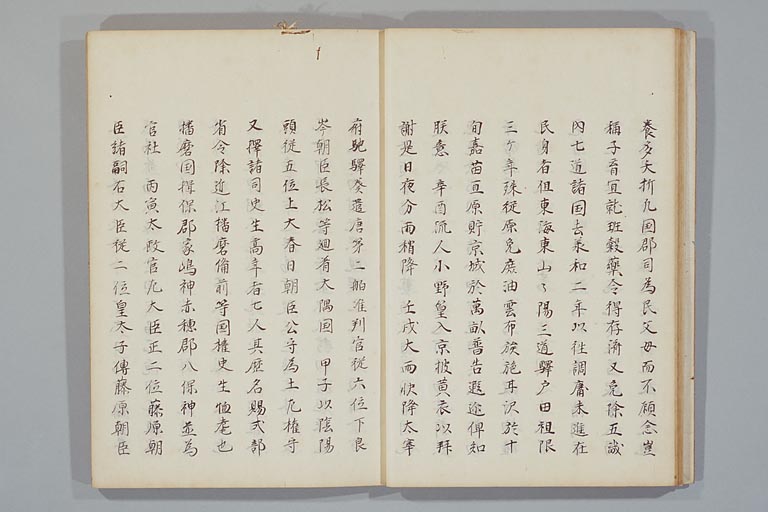 養多夭折凡国郡司為民父母而不顧念豈
稱子育宜乾班穀藥令得存濟又免除五畿
內七道諸国去承和二年以往調庸未進在
民身者但東海東山々陽三道驛戸田租限
三ケ年殊從原免庶油雲布族施耳沢於十
旬嘉苗亘原貯京城於萬畝普告遐迩俾知
朕意 辛酉流人小野篁入京披黄衣以拜
謝是日夜分雨稍降 壬戌大雨快降太宰
府馳驛癸遣唐第二舶准判官從六位下良
岑朝臣長松等廻着大隅国 甲子以陰陽
頭從五位上大春日朝臣公守為土左權守
又擇諸司史生高年者七人具歴名賜式部
省令除近江播磨備前等国權史生恤耄也
播磨国揖保郡家嶋神赤穗郡八保神並為
官社 丙寅太政官左大臣正二位藤原朝
臣諸嗣右大臣從二位皇太子傅藤原朝臣